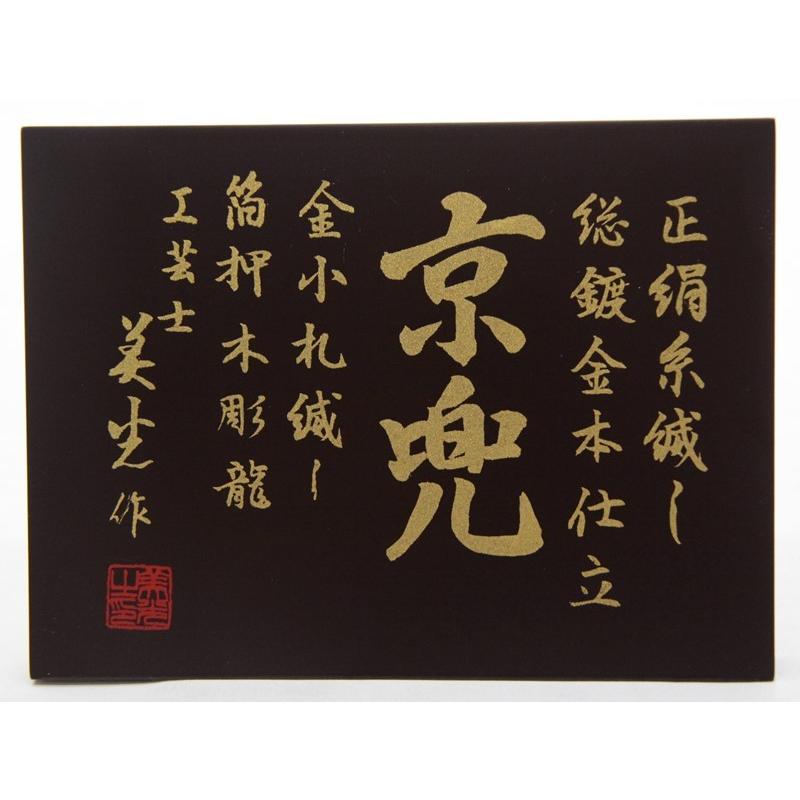 正絹糸縅し
総鍍金本仕立
京兜
金小札縅し
筒押木彫龍
工芸士
美光作
美光之印